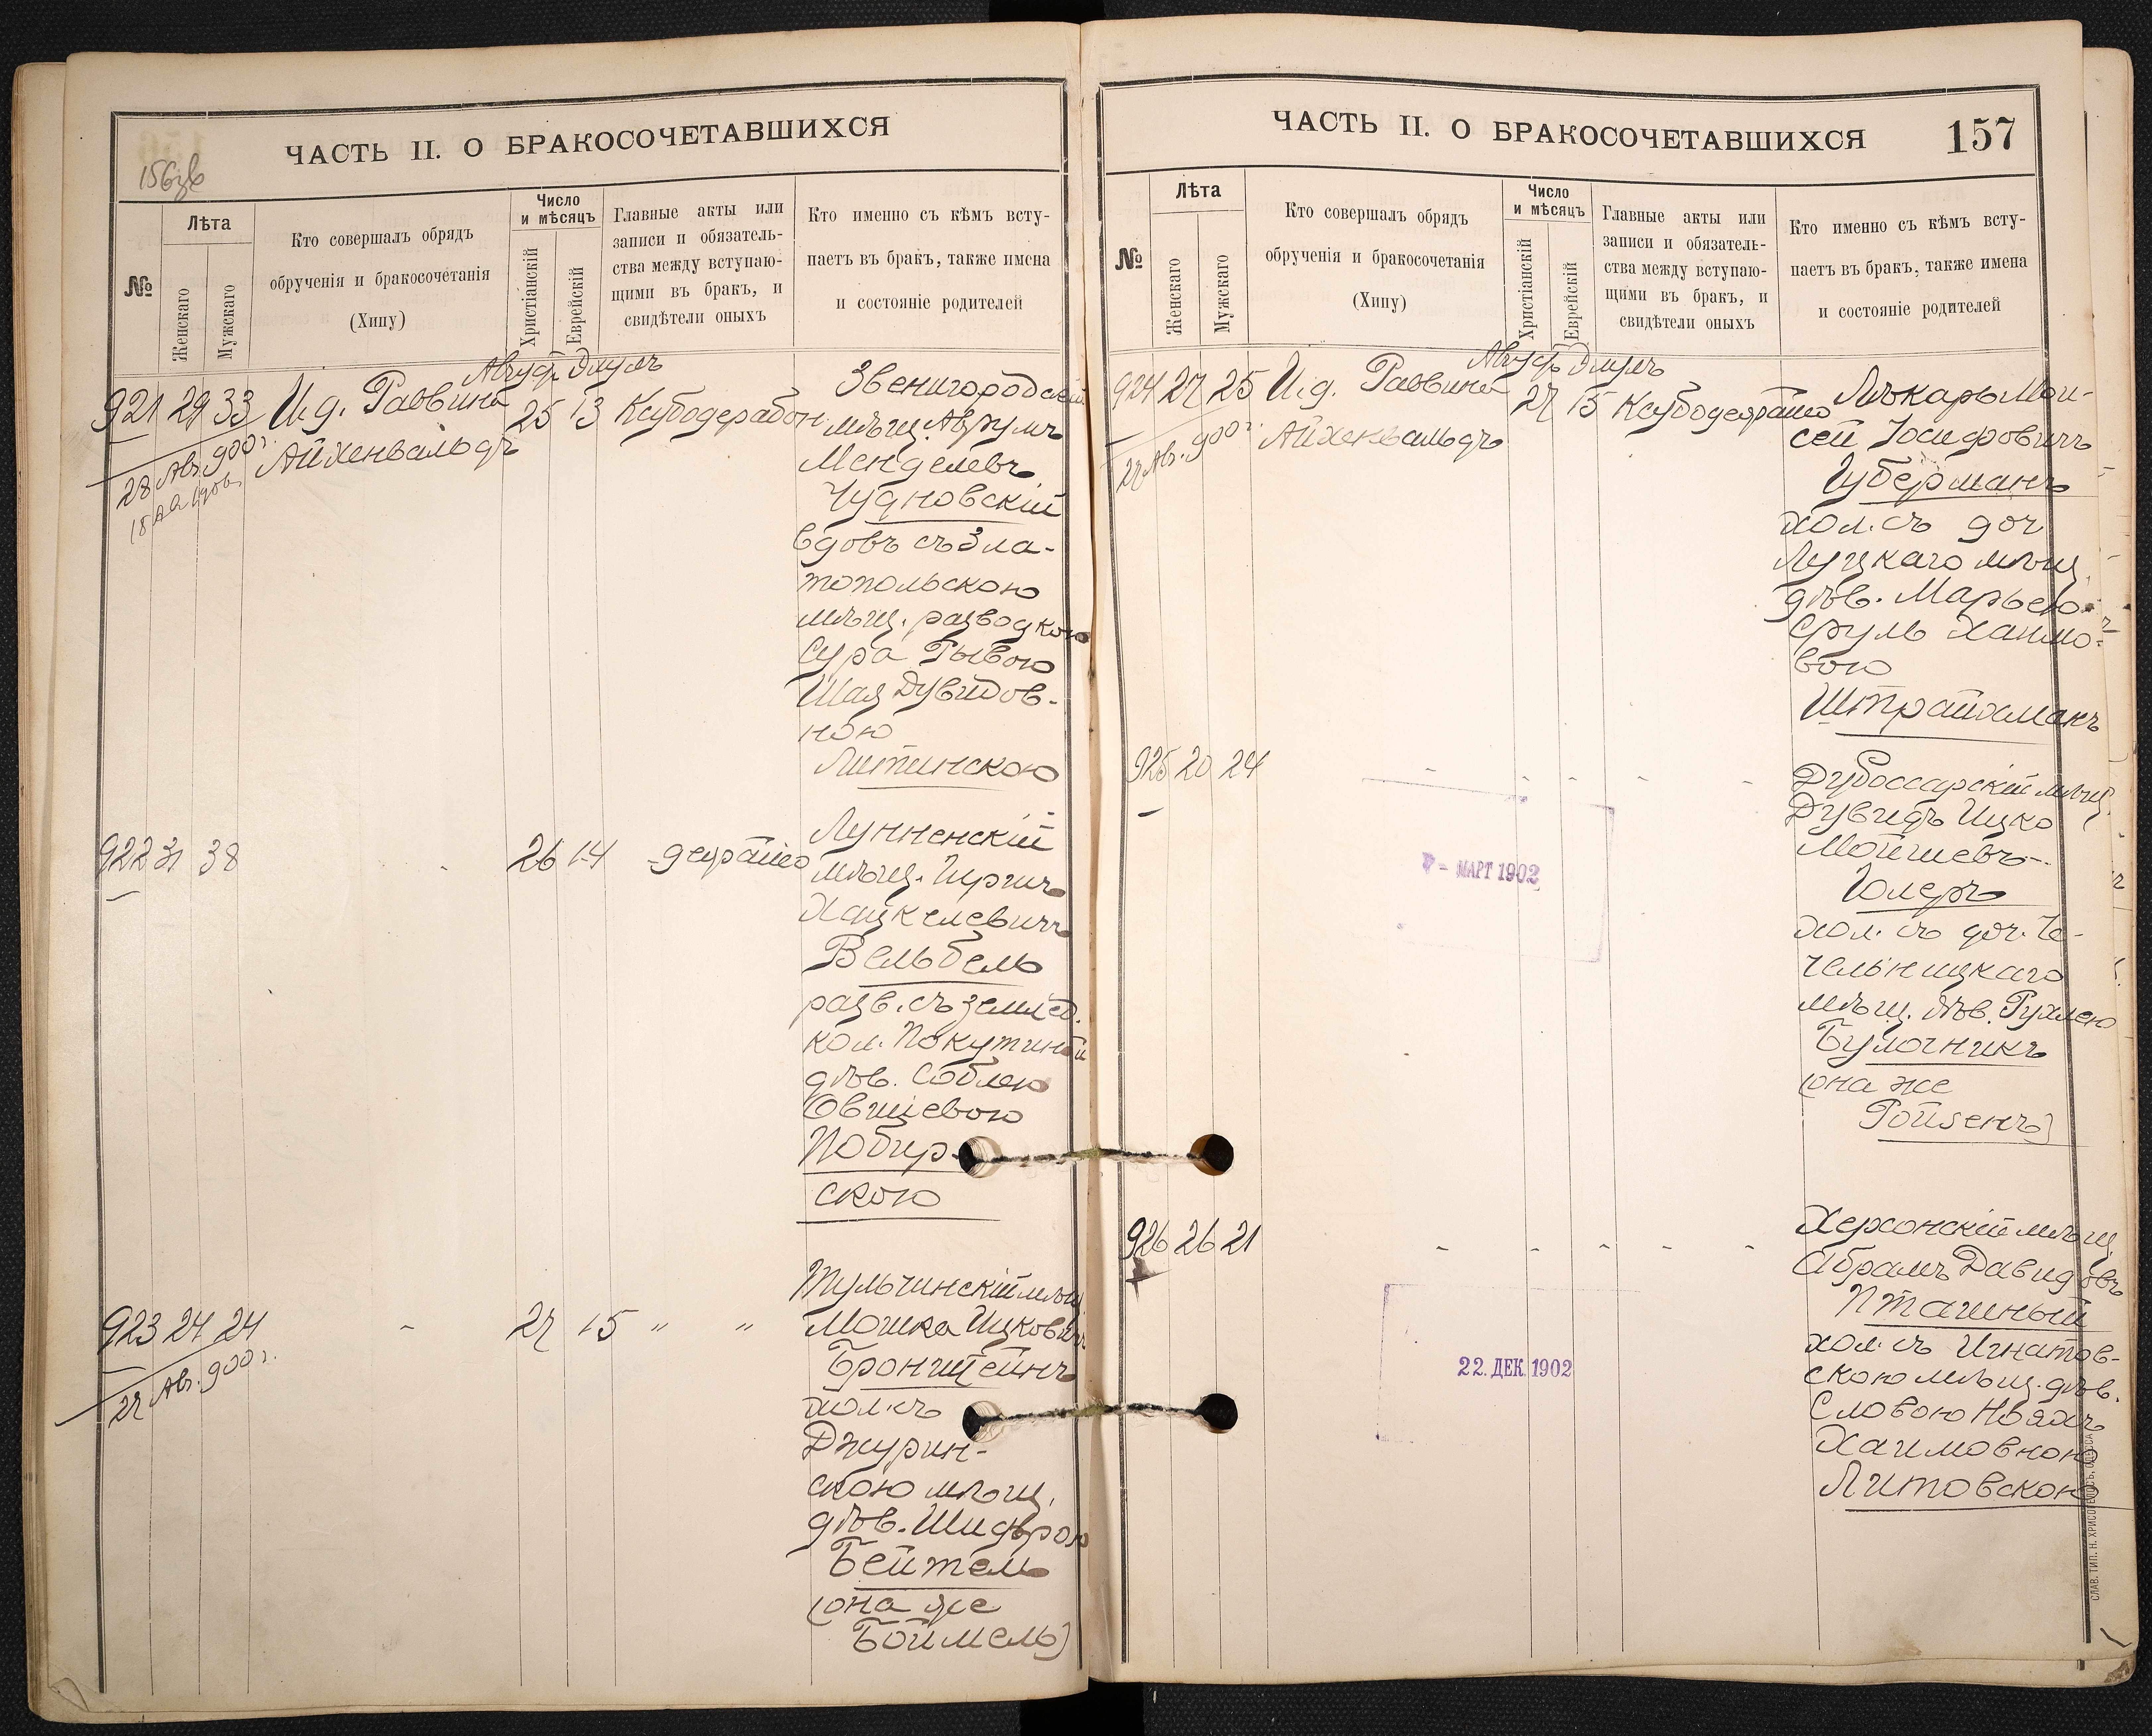 ЧАСТЬ II. О БРАКОСОЧЕТАВШИХСЯ
№
Лѣта
Женскаго
Мужскаго
Кто совершалъ обрядъ
обрученія и бракосочетанія
(Хипу)
Число
и мѣсяцъ
Христіанскій
Еврейскій
Главные акты или
записи и обязатель-
ства между вступаю-
щими въ бракъ, и
свидѣтели оныхъ
Кто именно съ кѣмъ всту-
паетъ въ бракъ, также имена
и состояніе родителей
921 29 33 И.д. Раввина
Айхенвальдъ
28 Авг. 900 г.
Август. Элулъ
25 13
Звенигородскій
мѣщ. Аврумъ
Менделевъ
Чудновскій
вдовъ съ Зла-
топольскою
мѣщ. разводкою
Сура Рывою
Шая Дувидов-
ною
Литинскою
922 31 38
26 14
Лунненскій
мѣщ. Гиршъ
Хацкелевичъ
Вельбель
разв. съ землед.
кол. Покутиной
дѣв. Соблею
Овшіевою
Побир-
скою
923 24 24 - 27 15 " "
27 Авг. 900 г.
Тульчинскій мѣщ.
Мошка Ицковичъ
Бронштейнъ
хол. съ
Джурин-
скою мѣщ.
дѣв. Шифрою
Бейтель
(она же
Боймель)
ЧАСТЬ II. О БРАКОСОЧЕТАВШИХСЯ 157
№
Лѣта
Женскаго
Мужскаго
Кто совершалъ обрядъ
обрученія и бракосочетанія
(Хипу)
Число
и мѣсяцъ
Христіанскій
Еврейскій
Главные акты или
записи и обязатель-
ства между вступаю-
щими въ бракъ, и
свидѣтели оныхъ
Кто именно съ кѣмъ всту-
паетъ въ бракъ, также имена
и состояніе родителей
924 27 25 И.д. Раввина
Айхенвальдъ
27 Авг. 900 г.
Август. Элулъ
27 15
Лѣкарь Мои-
сей Іосифовичъ
Губерманъ
хол. съ доч
Луцкаго мѣщ.
дѣв. Марьею
Сруль Хаимо-
вою
Штрайхманъ
925 20 24 - - - - -
Дубоссарскій мѣщ.
Дувидъ Ицко
Мойшевъ
Юлеръ
хол. съ доч. Че-
чельницкаго
мѣщ. дѣв. Рухлею
Булочникъ
(она же
Ройзенъ)
МАРТ 1902
926 26 21 - - - - -
Херсонскій мѣщ.
Абрамъ Давидовъ
Пташный
хол. съ Игнатов-
скою мѣщ. дѣв.
Словою Нояхъ
Хаимовною
Литовскою
22. ДЕК. 1902
СЛАВ. ТИП. Н. ХРИСОГЕЛОСЪ, ОДЕССА